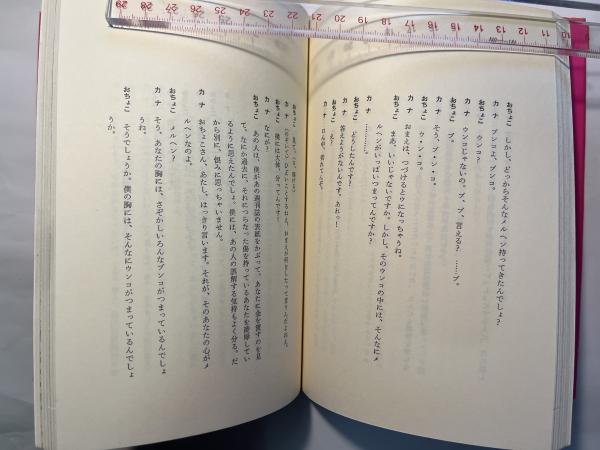 おちょこ しかし、どっからそんなメルヘン持ってきたんでしょ?
カナ ブンコよ、ブンコ。
おちょこ ウンコ?
カナ ウンコじゃないの。ブ、ブ、言える? ……ブ。
おちょこ ブ。
カナ そう、ブ・ン・コ。
おちょこ ウ・ン・コ。
カナ おまえは、つづけるとウになっちゃうね。
おちょこ まあ、いいじゃないですか。しかし、そのウンコの中には、そんなにメ
ルヘンがいっぱいつまってんですか?
カナ …………
おちょこ どうしたんです?
カナ 答えようがないんです、あれっ!
おちょこ え?
カナ
おちょこ 僕には大体、分ってんです!
カナ なにが?
おちょこ あの人は、僕があの週刊誌の表紙をかぶって、あなたに金を貸すのを見
て、なにか過去に、それにつらなった傷を持っているあなたを清掃してい
るように思えたんでしょ。僕には、あの人の誤解する気持もよく分る。だ
から別に、恨みに思っちゃいません。
カナ おちょこさん、あたし、はっきり言います。それが、そのあなたの心がメ
ルヘンなのよ。
おちょこ メルヘン?
カナ そう、あなたの胸には、さぞかしいろんなブンコがつまっているんでしょ
うね。
おちょこ そうでしょうか。僕の胸には、そんなにウンコがつまっているんでしょ
うか。
29 28 27 26 25 24 23 22 21 20 19 18 17 16 15 14 13 12 11 10